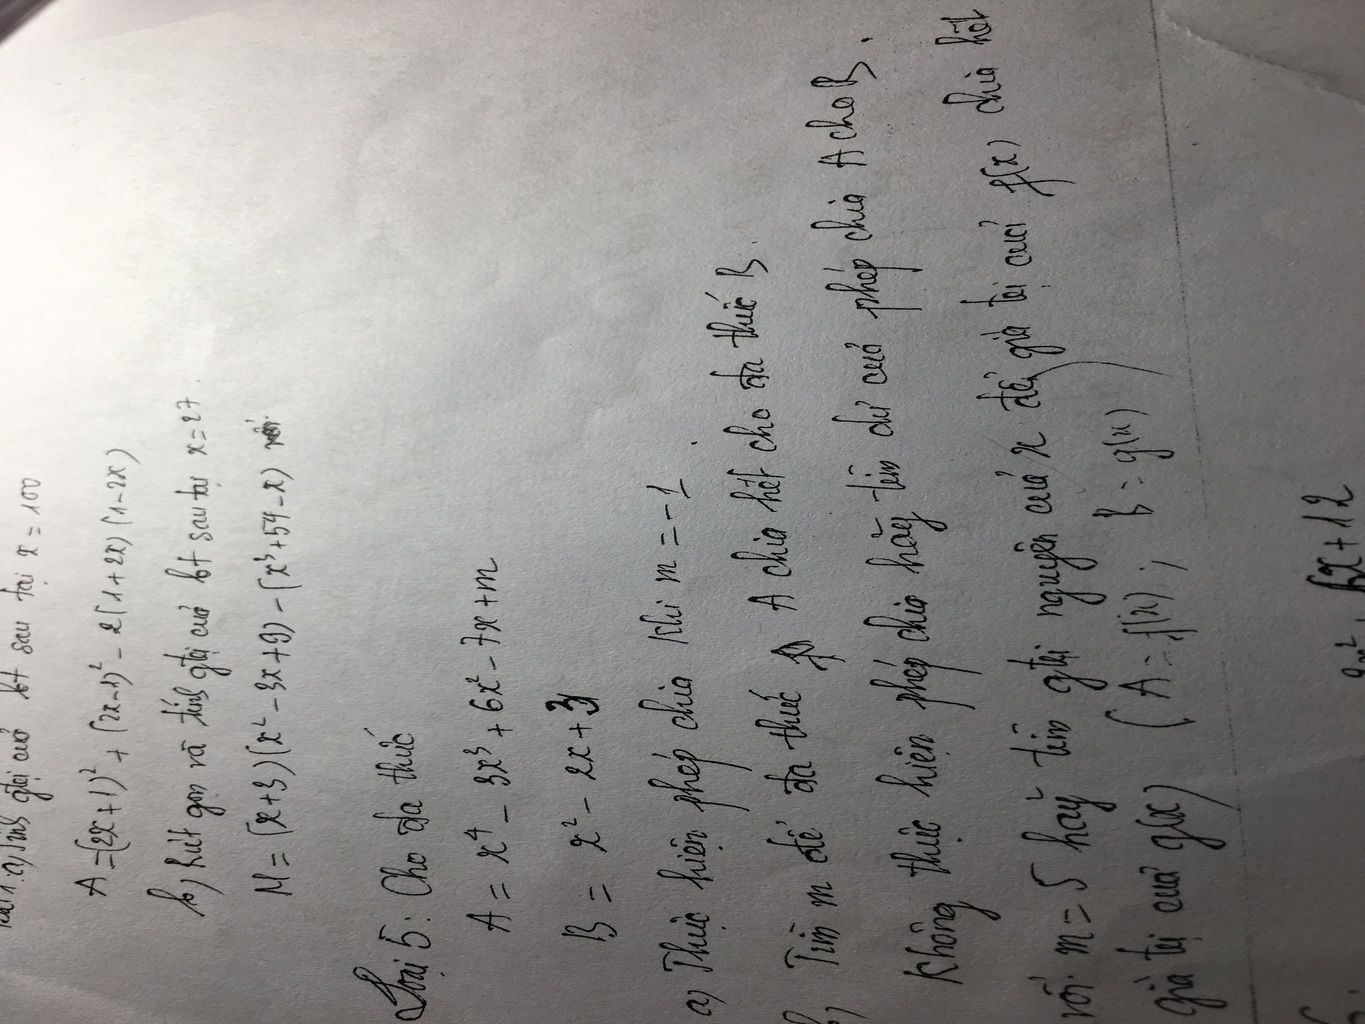 a) Tính gtrị của bt sau tại x = 100
A = (2x+1)² + (2x-1)² - 2(1+2x)(1-2x)
b) Rút gọn và tính gtrị của bt sau tại x = 27
M = (x+3)(x² - 3x + 9) - (x³ + 54 - x) với
Loại 5: Cho đa thức
A = x⁴ - 3x³ + 6x² - 7x + m
B = x² - 2x + 3
a) Thực hiện phép chia khi m = -1
b) Tìm m để đa thức A chia hết cho đa thức B.
không thực hiện phép chia hãy tìm dư của phép chia A cho B.
với m = 5 hãy tìm gtrị nguyên của x để giá trị của f(x) chia hết
giá trị của g(x) (A = f(x); B = g(x)
6x + 12